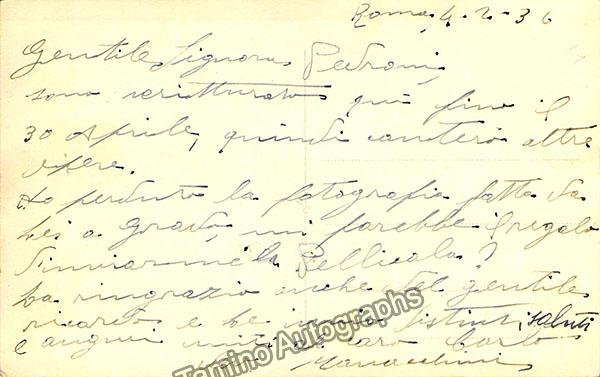 Roma, 4-2-36
Gentile Signora Pedroni,
sono scritturato qui fino il
30 Aprile, quindi canterò altre
opere.
Ho perduto la fotografia fatta da
Lei a Grado, mi farebbe il regalo
d'inviarmela Pellicola?
La ringrazio anche del gentile
ricordo e Le invio distinti saluti
e auguri uniti al caro Carlo
Manacchini
Tamino Autographs